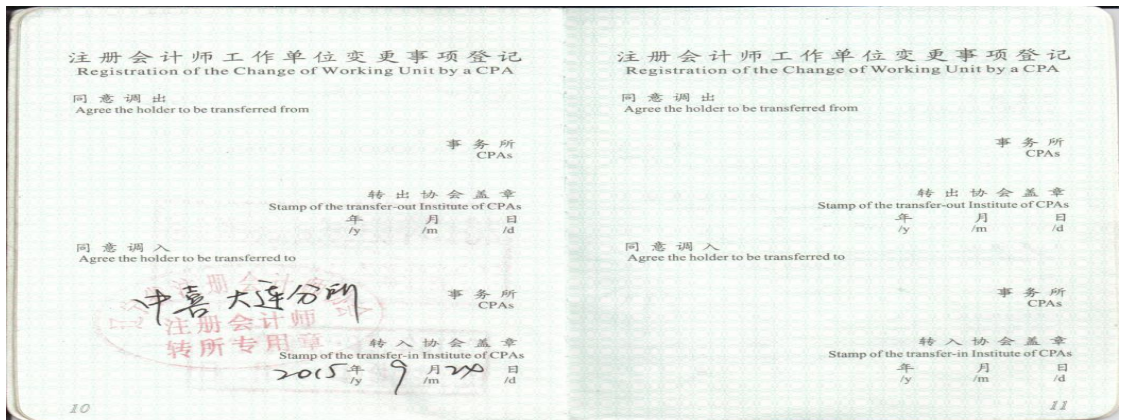 注册会计师工作单位变更事项登记
Registration of the Change of Working Unit by a CPA
同意调出
Agree the holder to be transferred from
事务所
CPAs
转出协会盖章
Stamp of the transfer-out Institute of CPAs
年 月 日
/y /m /d
同意调入
Agree the holder to be transferred to
中喜大连分所
事务所
CPAs
注册会计师
转所专用章
转入协会盖章
Stamp of the transfer-in Institute of CPAs
2015年 9月 日
/y /m /d
10
注册会计师工作单位变更事项登记
Registration of the Change of Working Unit by a CPA
同意调出
Agree the holder to be transferred from
事务所
CPAs
转出协会盖章
Stamp of the transfer-out Institute of CPAs
年 月 日
/y /m /d
同意调入
Agree the holder to be transferred to
事务所
CPAs
转入协会盖章
Stamp of the transfer-in Institute of CPAs
年 月 日
/y /m /d
11